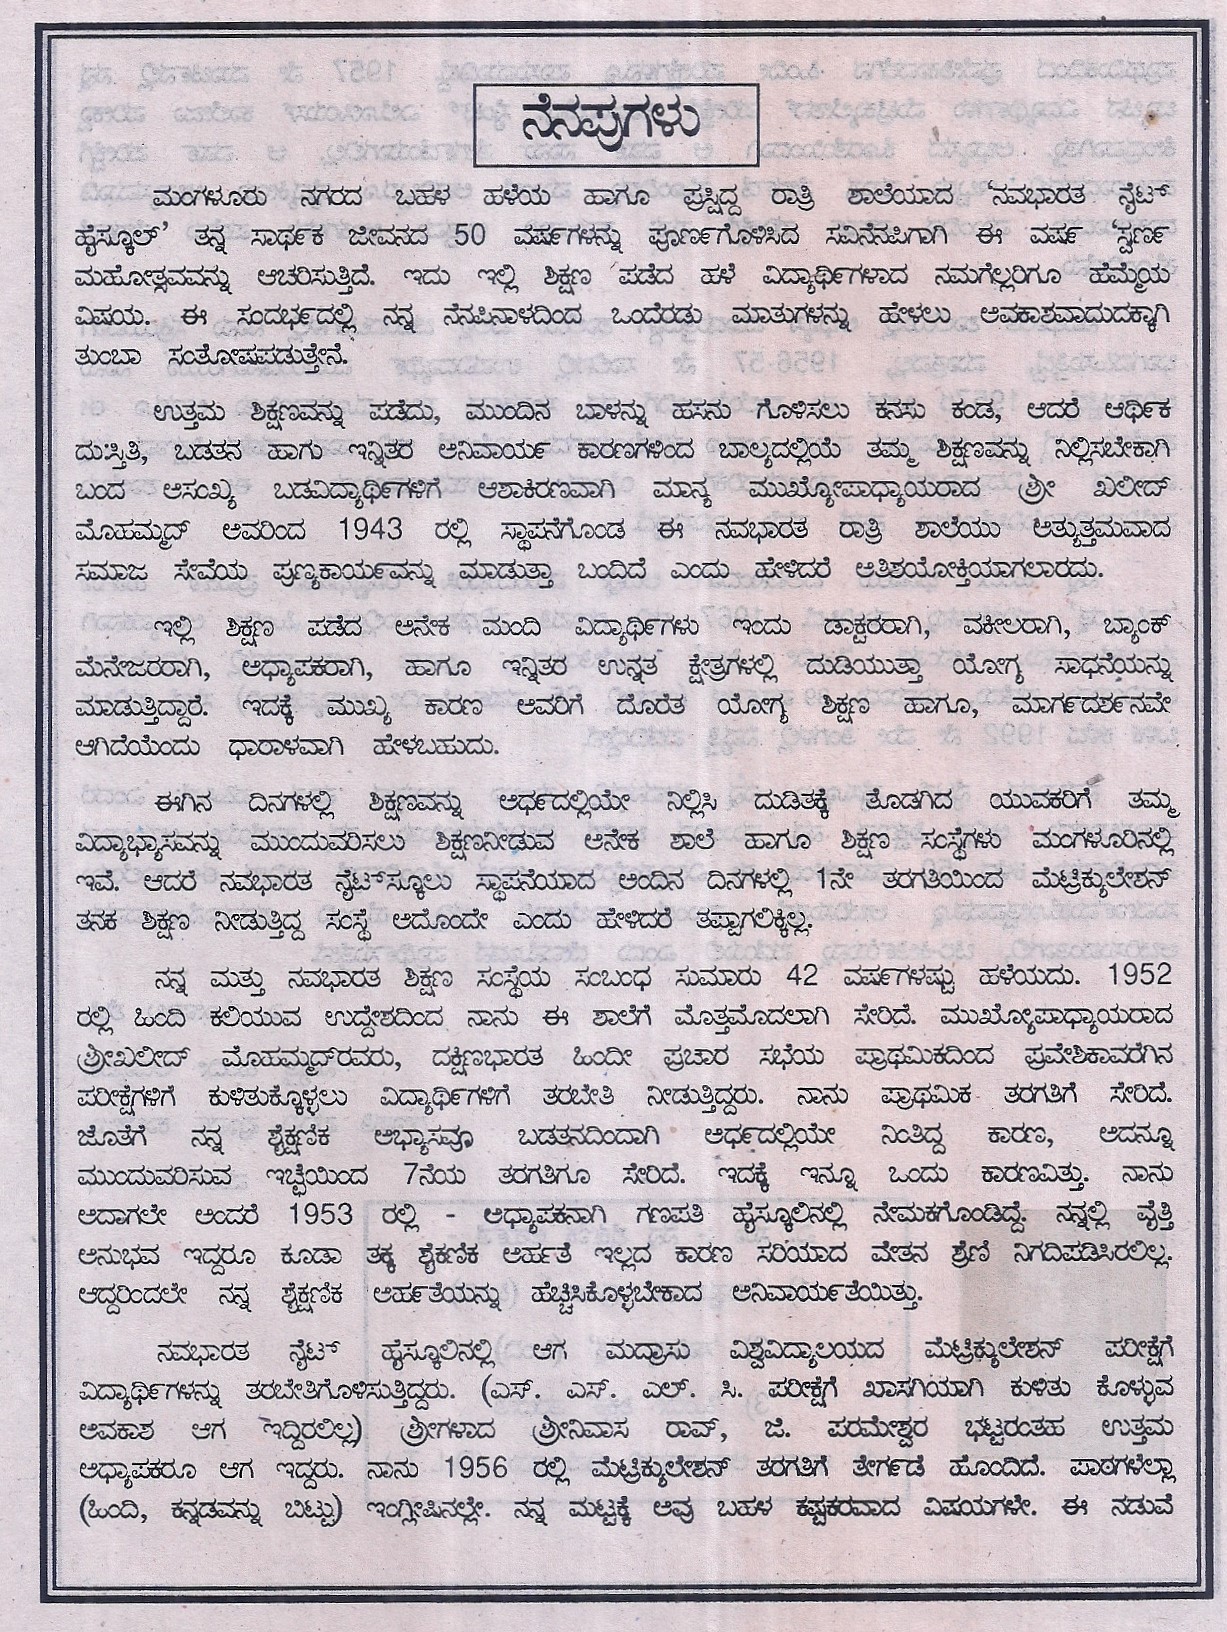 ನೆನಪುಗಳು
ಮಂಗಳೂರು ನಗರದ ಬಹಳ ಹಳೆಯ ಹಾಗೂ ಪ್ರಸ್ಸಿದ್ಧ ರಾತ್ರಿ ಶಾಲೆಯಾದ ‘ನವಭಾರತ ನೈಟ್
ಹೈಸ್ಕೂಲ್’ ತನ್ನ ಸಾರ್ಥಕ ಜೀವನದ 50 ವರ್ಷಗಳನ್ನು ಪೂರ್ಣಗೊಳಿಸಿದ ಸವಿನೆನಪಿಗಾಗಿ ಈ ವರ್ಷ ‘ಸ್ವರ್ಣ
ಮಹೋತ್ಸವವನ್ನು ಆಚರಿಸುತ್ತಿದೆ. ಇದು ಇಲ್ಲಿ ಶಿಕ್ಷಣ ಪಡೆದ ಹಳೆ ವಿದ್ಯಾರ್ಥಿಗಳಾದ ನಮಗೆಲ್ಲರಿಗೂ ಹೆಮ್ಮೆಯ
ವಿಷಯ. ಈ ಸಂದರ್ಭದಲ್ಲಿ ನನ್ನ ನೆನಪಿನಾಳದಿಂದ ಒಂದೆರಡು ಮಾತುಗಳನ್ನು ಹೇಳಲು ಅವಕಾಶವಾದುದಕ್ಕಾಗಿ
ತುಂಬಾ ಸಂತೋಷಪಡುತ್ತೇನೆ.
ಉತ್ತಮ ಶಿಕ್ಷಣವನ್ನು ಪಡೆದು, ಮುಂದಿನ ಬಾಳನ್ನು ಹಸನು ಗೊಳಿಸಲು ಕನಸು ಕಂಡ, ಆದರೆ ಆರ್ಥಿಕ
ದುಃಸ್ತಿತಿ, ಬಡತನ ಹಾಗು ಇನ್ನಿತರ ಅನಿವಾರ್ಯ ಕಾರಣಗಳಿಂದ ಬಾಲ್ಯದಲ್ಲಿಯೆ ತಮ್ಮ ಶಿಕ್ಷಣವನ್ನು ನಿಲ್ಲಿಸಬೇಕಾಗಿ
ಬಂದ ಅಸಂಖ್ಯ ಬಡವಿದ್ಯಾರ್ಥಿಗಳಿಗೆ ಆಶಾಕಿರಣವಾಗಿ ಮಾನ್ಯ ಮುಖ್ಯೋಪಾಧ್ಯಾಯರಾದ ಶ್ರೀ ಖಲೀದ್
ಮೊಹಮ್ಮದ್ ಅವರಿಂದ 1943 ರಲ್ಲಿ ಸ್ಥಾಪನೆಗೊಂಡ ಈ ನವಭಾರತ ರಾತ್ರಿ ಶಾಲೆಯು ಅತ್ಯುತ್ತಮವಾದ
ಸಮಾಜ ಸೇವೆಯ ಪುಣ್ಯಕಾರ್ಯವನ್ನು ಮಾಡುತ್ತಾ ಬಂದಿದೆ ಎಂದು ಹೇಳಿದರೆ ಅತಿಶಯೋಕ್ತಿಯಾಗಲಾರದು.
ಇಲ್ಲಿ ಶಿಕ್ಷಣ ಪಡೆದ ಅನೇಕ ಮಂದಿ ವಿದ್ಯಾರ್ಥಿಗಳು ಇಂದು ಡಾಕ್ಟರರಾಗಿ, ವಕೀಲರಾಗಿ, ಬ್ಯಾಂಕ್
ಮೆನೇಜರರಾಗಿ, ಅಧ್ಯಾಪಕರಾಗಿ, ಹಾಗೂ ಇನ್ನಿತರ ಉನ್ನತ ಕ್ಷೇತ್ರಗಳಲ್ಲಿ ದುಡಿಯುತ್ತಾ ಯೋಗ್ಯ ಸಾಧನೆಯನ್ನು
ಮಾಡುತ್ತಿದ್ದಾರೆ. ಇದಕ್ಕೆ ಮುಖ್ಯ ಕಾರಣ ಅವರಿಗೆ ದೊರೆತ ಯೋಗ್ಯ ಶಿಕ್ಷಣ ಹಾಗೂ, ಮಾರ್ಗದರ್ಶನವೇ
ಆಗಿದೆಯೆಂದು ಧಾರಾಳವಾಗಿ ಹೇಳಬಹುದು.
ಈಗಿನ ದಿನಗಳಲ್ಲಿ ಶಿಕ್ಷಣವನ್ನು ಅರ್ಧದಲ್ಲಿಯೇ ನಿಲ್ಲಿಸಿ ದುಡಿತಕ್ಕೆ ತೊಡಗಿದ ಯುವಕರಿಗೆ ತಮ್ಮ
ವಿದ್ಯಾಭ್ಯಾಸವನ್ನು ಮುಂದುವರಿಸಲು ಶಿಕ್ಷಣನೀಡುವ ಅನೇಕ ಶಾಲೆ ಹಾಗೂ ಶಿಕ್ಷಣ ಸಂಸ್ಥೆಗಳು ಮಂಗಳೂರಿನಲ್ಲಿ
ಇವೆ. ಆದರೆ ನವಭಾರತ ನೈಟ್‌ಸ್ಕೂಲು ಸ್ಥಾಪನೆಯಾದ ಅಂದಿನ ದಿನಗಳಲ್ಲಿ 1ನೇ ತರಗತಿಯಿಂದ ಮೆಟ್ರಿಕ್ಯುಲೇಶನ್
ತನಕ ಶಿಕ್ಷಣ ನೀಡುತ್ತಿದ್ದ ಸಂಸ್ಥೆ ಅದೊಂದೇ ಎಂದು ಹೇಳಿದರೆ ತಪ್ಪಾಗಲಿಕ್ಕಿಲ್ಲ.
ನನ್ನ ಮತ್ತು ನವಭಾರತ ಶಿಕ್ಷಣ ಸಂಸ್ಥೆಯ ಸಂಬಂಧ ಸುಮಾರು 42 ವರ್ಷಗಳಷ್ಟು ಹಳೆಯದು. 1952
ರಲ್ಲಿ ಹಿಂದಿ ಕಲಿಯುವ ಉದ್ದೇಶದಿಂದ ನಾನು ಈ ಶಾಲೆಗೆ ಮೊತ್ತಮೊದಲಾಗಿ ಸೇರಿದೆ. ಮುಖ್ಯೋಪಾಧ್ಯಾಯರಾದ
ಶ್ರೀಖಲೀದ್ ಮೊಹಮ್ಮದ್‌ರವರು, ದಕ್ಷಿಣಭಾರತ ಹಿಂದೀ ಪ್ರಚಾರ ಸಭೆಯ ಪ್ರಾಥಮಿಕದಿಂದ ಪ್ರವೇಶಿಕಾವರೆಗಿನ
ಪರೀಕ್ಷೆಗಳಿಗೆ ಕುಳಿತುಕ್ಕೊಳ್ಳಲು ವಿದ್ಯಾರ್ಥಿಗಳಿಗೆ ತರಬೇತಿ ನೀಡುತ್ತಿದ್ದರು. ನಾನು ಪ್ರಾಥಮಿಕ ತರಗತಿಗೆ ಸೇರಿದೆ.
ಜೊತೆಗೆ ನನ್ನ ಶೈಕ್ಷಣಿಕ ಅಭ್ಯಾಸವೂ ಬಡತನದಿಂದಾಗಿ ಅರ್ಧದಲ್ಲಿಯೇ ನಿಂತಿದ್ದ ಕಾರಣ, ಅದನ್ನೂ
ಮುಂದುವರಿಸುವ ಇಚ್ಛೆಯಿಂದ 7ನೆಯ ತರಗತಿಗೂ ಸೇರಿದೆ. ಇದಕ್ಕೆ ಇನ್ನೂ ಒಂದು ಕಾರಣವಿತ್ತು. ನಾನು
ಅದಾಗಲೇ ಅಂದರೆ 1953 ರಲ್ಲಿ - ಅಧ್ಯಾಪಕನಾಗಿ ಗಣಪತಿ ಹೈಸ್ಕೂಲಿನಲ್ಲಿ ನೇಮಕಗೊಂಡಿದ್ದೆ. ನನ್ನಲ್ಲಿ ವೃತ್ತಿ
ಅನುಭವ ಇದ್ದರೂ ಕೂಡಾ ತಕ್ಕ ಶೈಕಣಿಕ ಅರ್ಹತೆ ಇಲ್ಲದ ಕಾರಣ ಸರಿಯಾದ ವೇತನ ಶ್ರೇಣಿ ನಿಗದಿಪಡಿಸಿರಲಿಲ್ಲ.
ಆದ್ದರಿಂದಲೇ ನನ್ನ ಶೈಕ್ಷಣಿಕ ಅರ್ಹತೆಯನ್ನು ಹೆಚ್ಚಿಸಿಕೊಳ್ಳಬೇಕಾದ ಅನಿವಾರ್ಯತೆಯಿತ್ತು.
ನವಭಾರತ ನೈಟ್ ಹೈಸ್ಕೂಲಿನಲ್ಲಿ ಆಗ ಮದ್ರಾಸು ವಿಶ್ವವಿದ್ಯಾಲಯದ ಮೆಟ್ರಿಕ್ಯುಲೇಶನ್ ಪರೀಕ್ಷೆಗೆ
ವಿದ್ಯಾರ್ಥಿಗಳನ್ನು ತರಬೇತಿಗೊಳಿಸುತ್ತಿದ್ದರು. (ಎಸ್. ಎಸ್. ಎಲ್. ಸಿ. ಪರೀಕ್ಷೆಗೆ ಖಾಸಗಿಯಾಗಿ ಕುಳಿತು ಕೊಳ್ಳುವ
ಅವಕಾಶ ಆಗ ಇದ್ದಿರಲಿಲ್ಲ) ಶ್ರೀಗಳಾದ ಶ್ರೀನಿವಾಸ ರಾವ್, ಜಿ. ಪರಮೇಶ್ವರ ಭಟ್ಟರಂತಹ ಉತ್ತಮ
ಅಧ್ಯಾಪಕರೂ ಆಗ ಇದ್ದರು. ನಾನು 1956 ರಲ್ಲಿ ಮೆಟ್ರಿಕ್ಯುಲೇಶನ್ ತರಗತಿಗೆ ತೇರ್ಗಡೆ ಹೊಂದಿದೆ. ಪಾಠಗಳೆಲ್ಲಾ
(ಹಿಂದಿ, ಕನ್ನಡವನ್ನು ಬಿಟ್ಟು) ಇಂಗ್ಲೀಷಿನಲ್ಲೇ. ನನ್ನ ಮಟ್ಟಕ್ಕೆ ಅವು ಬಹಳ ಕಷ್ಟಕರವಾದ ವಿಷಯಗಳೇ. ಈ ನಡುವೆ